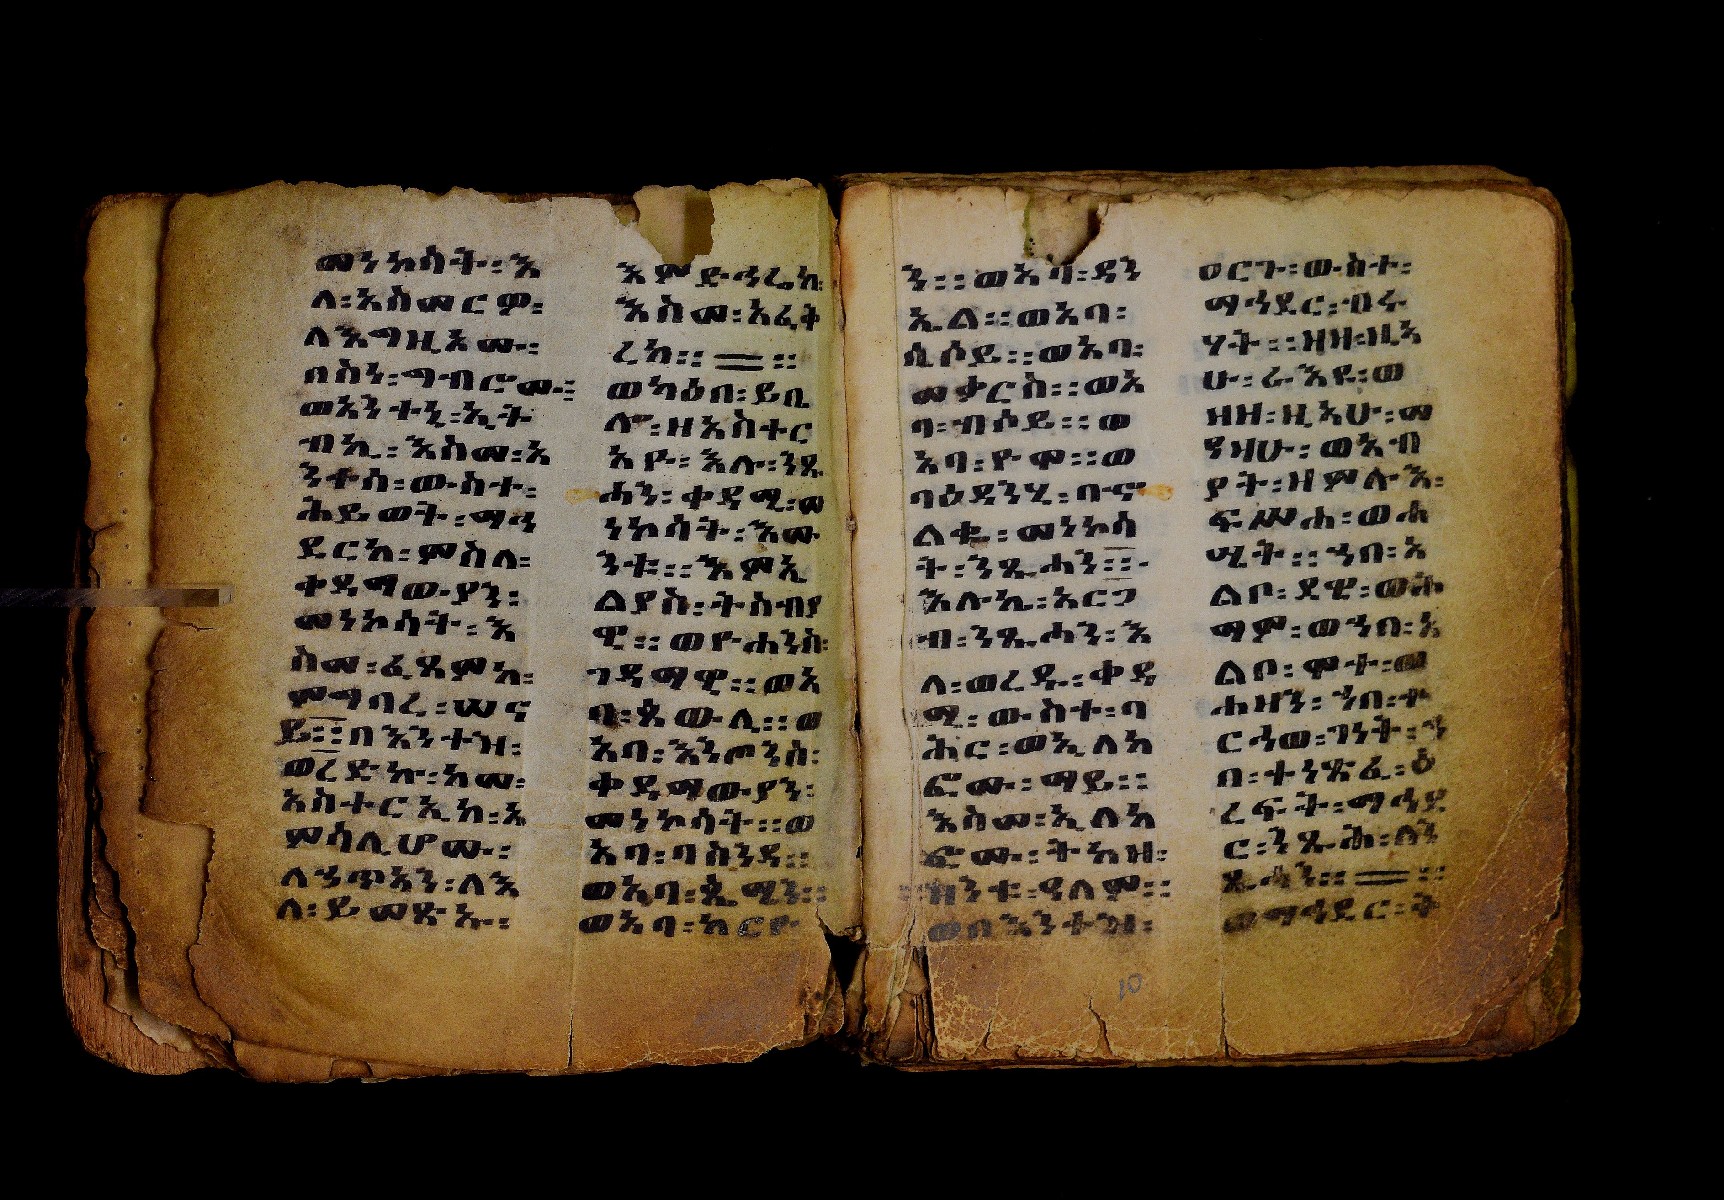 መነኮሳት፡እ
ለ፡አስመርም፡
ለእግዚአሙ፡
በስነ፡ግብሮሙ፡፡
ወአንተኒ፡ኢት
ብኪ፡እስመ፡አ
ንተሰ፡ውስተ፡
ሕይወት፡ማኅ
ደርከ፡ምስለ፡
ቀዳማውያን፡
መነኮሳት፡እ
ስመ፡ፈጸምከ፡
ምግባረ፡ሠና
ይ፡፡በእንተዝ፡
ወረድኩ፡ከመ፡
አስተርኢከ፡አ
ምሳሊሆሙ፡
ለኅጥአን፡ለእ
ለ፡ይመጽኡ፡
እምድኅሬከ፡
እስመ፡አፈቅ
ረከ፡፡ ፡፡
ወካዕበ፡ይቤ
ሎ፡ዘአስተር
አዮ፡እሉ፡ንጹ
ሓን፡ቀዳሚ፡መ
ነኮሳት፡እሙ
ንቱ፡፡እምኢ
ልያስ፡ትስብያ
ዊ፡፡ወዮሐንስ፡
ገዳማዊ፡፡ወአ
ባ፡ጳውሊ፡፡ወ
አባ፡እንጦንስ፡
ቀዳማውያን፡
መነኮሳት፡፡ወ
አባ፡ባስንዳ፡፡
ወአባ፡ጴሚን፡፡
ወአባ፡አርዮ
ን፡፡ወአባ፡ዳን
ኢል፡፡ወአባ፡
ሲሶይ፡፡ወአባ፡
መቃርስ፡፡ወአ
ባ፡ብሶይ፡፡ወ
አባ፡ዮሞ፡፡ወ
ባዕዳንሂ፡በኍ
ልቄ፡መነኮሳ
ት፡ንጹሓን፡፡
እሉኬ፡አርገ
ብ፡ንጹሓን፡እ
ለ፡ወረዱ፡ቀዳ
ሚ፡ውስተ፡ባ
ሕር፡ወኢለክ
ፎሙ፡ማይ፡፡
እስመ፡ኢለክ
ፎሙ፡ትካዝ፡
ዝንቱ፡ዓለም፡፡
ወበእንተዝ፡
ዐርጉ፡ውስተ፡
ማኅደር፡ብሩ
ሃት፡፡ዘዘ፡ዚአ
ሁ፡ራእዩ፡ወ
ዘዘ፡ዚአሁ፡መ
ዓዛሁ፡ወአብ
ያት፡ዘምሉእ፡
ፍሥሐ፡ወሐ
ሤት፡፡ኀበ፡አ
ልቦ፡ደዌ፡ወሕ
ማም፡ወኀበ፡አ
ልቦ፡ሞት፡ወ
ሐዘን፡ኀበ፡ተ
ርኅወ፡ገነት፡ኀ
በ፡ተነጽፈ፡ዕ
ረፍት፡ማኅደ
ር፡ንጹሕ፡ለን
ጹሓን፡፡ ፡፡
ወማኅደር፡ት
10